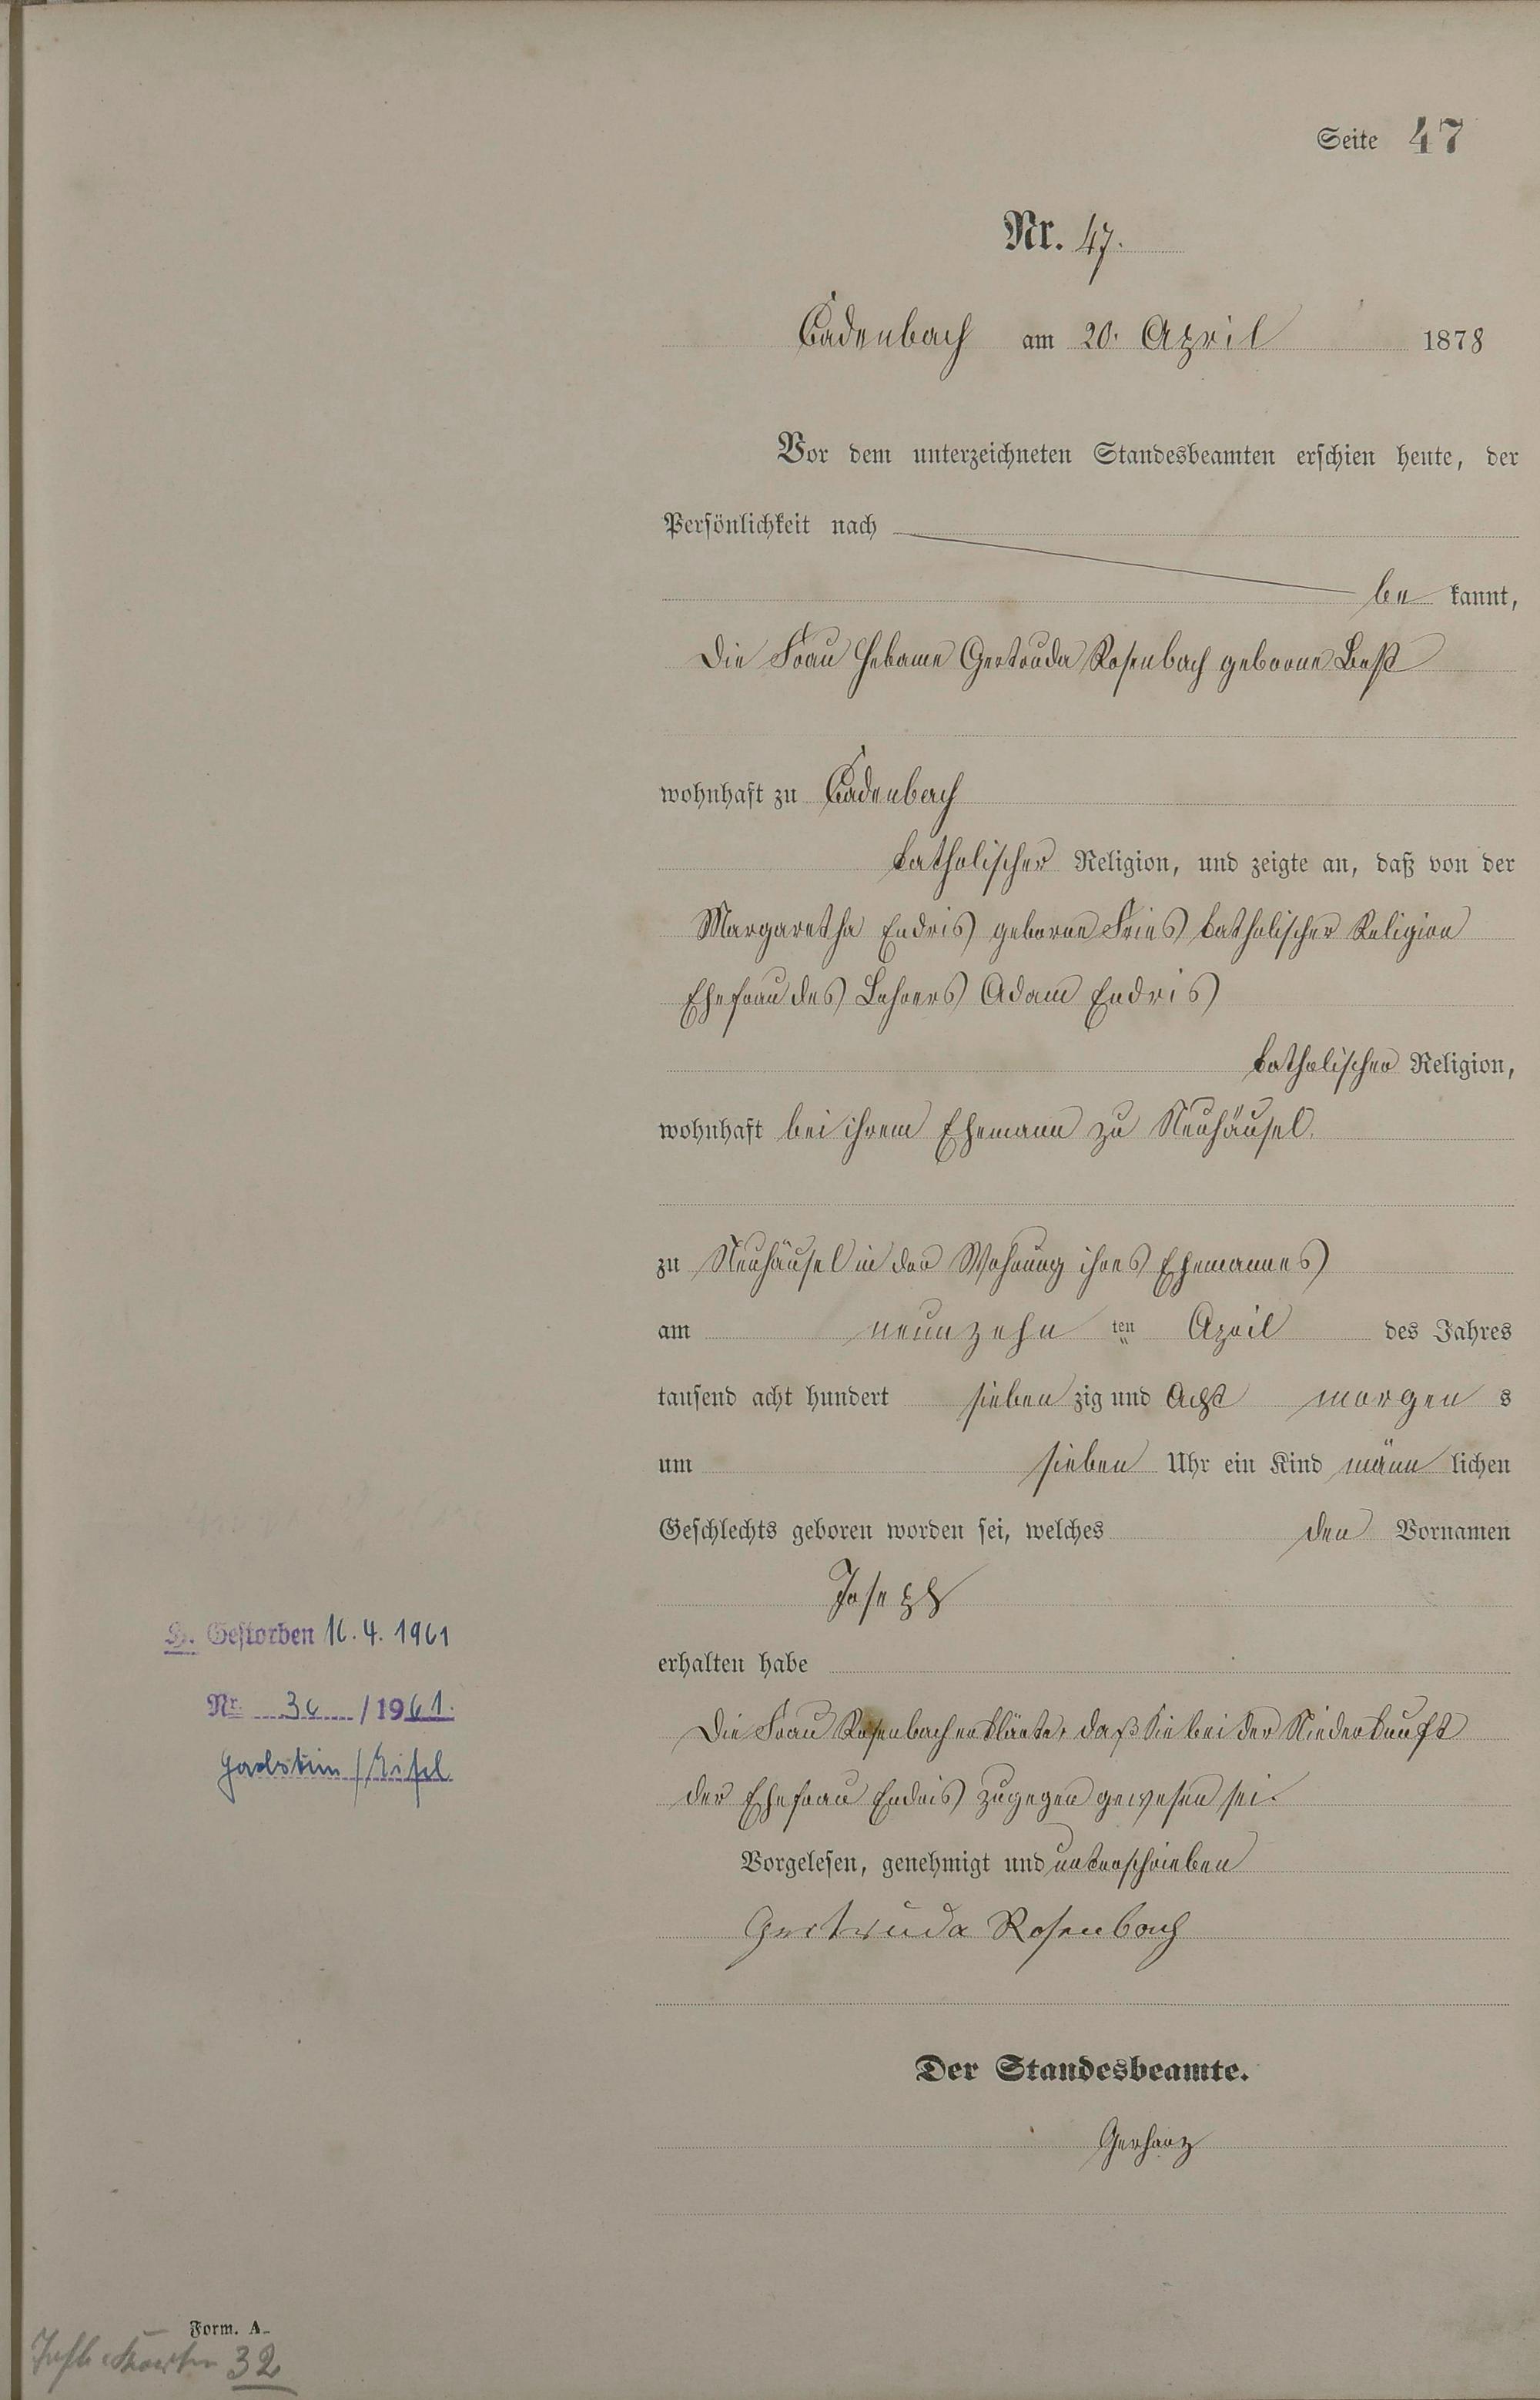 Seite 47
Nr. 47.
Cadenbach am 20. April 1878
Vor dem unterzeichneten Standesbeamten erschien heute, der
Persönlichkeit nach
be kannt,
Die Frau Hebame Gertruda Rosenbach geborne Best
wohnhaft zu Cadenbach
katholischer Religion, und zeigte an, daß von der
Margaretha Endris geborne Fries katholischer Religion
Ehefrau des Lehrers Adam Endris
katholischer Religion,
wohnhaft bei ihrem Ehemann zu Neuhäusel.
zu Neuhäusel in der Wohnung ihres Ehemannes
am neunzehn ten April des Jahres
tausend acht hundert sieben zig und Acht morgen s
um sieben Uhr ein Kind männ lichen
Geschlechts geboren worden sei, welches den Vornamen
Joseph
erhalten habe
Die Frau Rosenbach erklärte, daß Sie bei der Niederkunft
der Ehefrau Endris zugegen gewesen sei.
Vorgelesen, genehmigt und unterschrieben
Gertruda Rosenbach
Der Standesbeamte.
Gerharz
H. Gestorben 16.4.1961
Nr. 36 /1961.
/Eifel
Form. A.
32